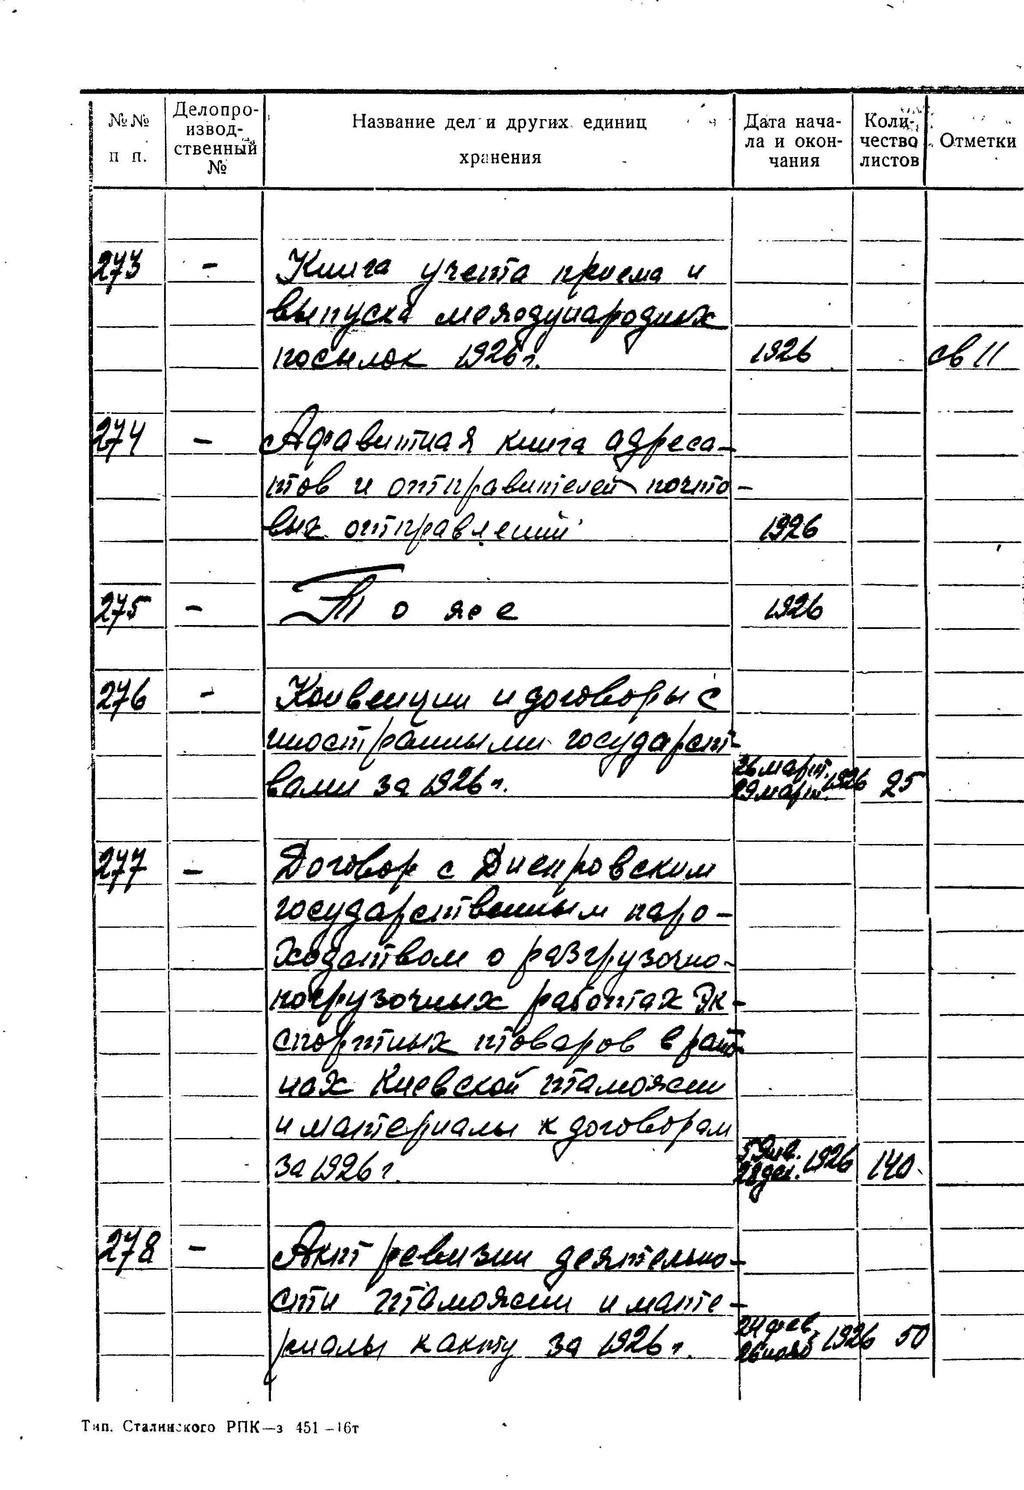 №№ п п.
Делопро-
извод-
ственный
№
Название дел и других единиц
хранения
Дата нача-
ла и окон-
чания
Коли-
чество
листов
Отметки
273 - Книга учета приема и
выпуска международных
посылок 1926 г. 1926 св 11
274 - Афавитная книга адреса-
тов и отправителей почто-
вых отправлений 1926
275 - То же 1926
276 - Конвенции и договоры с
иностранными государст-
вами за 1926 г. 26 март. 29 март. 1926 25
277 - Договор с Днепровским
государственным паро-
ходством о разгрузочно-
погрузочных работах эк-
спортных товаров в рай-
нах Киевской таможни
и материалы к договорам
за 1926 г. 5 янв. 28 дек. 1926 140
278 - Акт ревизии деятельно-
сти таможни и мате-
риалы к акту за 1926 г. 24 фев. 26 нояб 1926 50
Тип. Сталинского РПК—з 451—16т